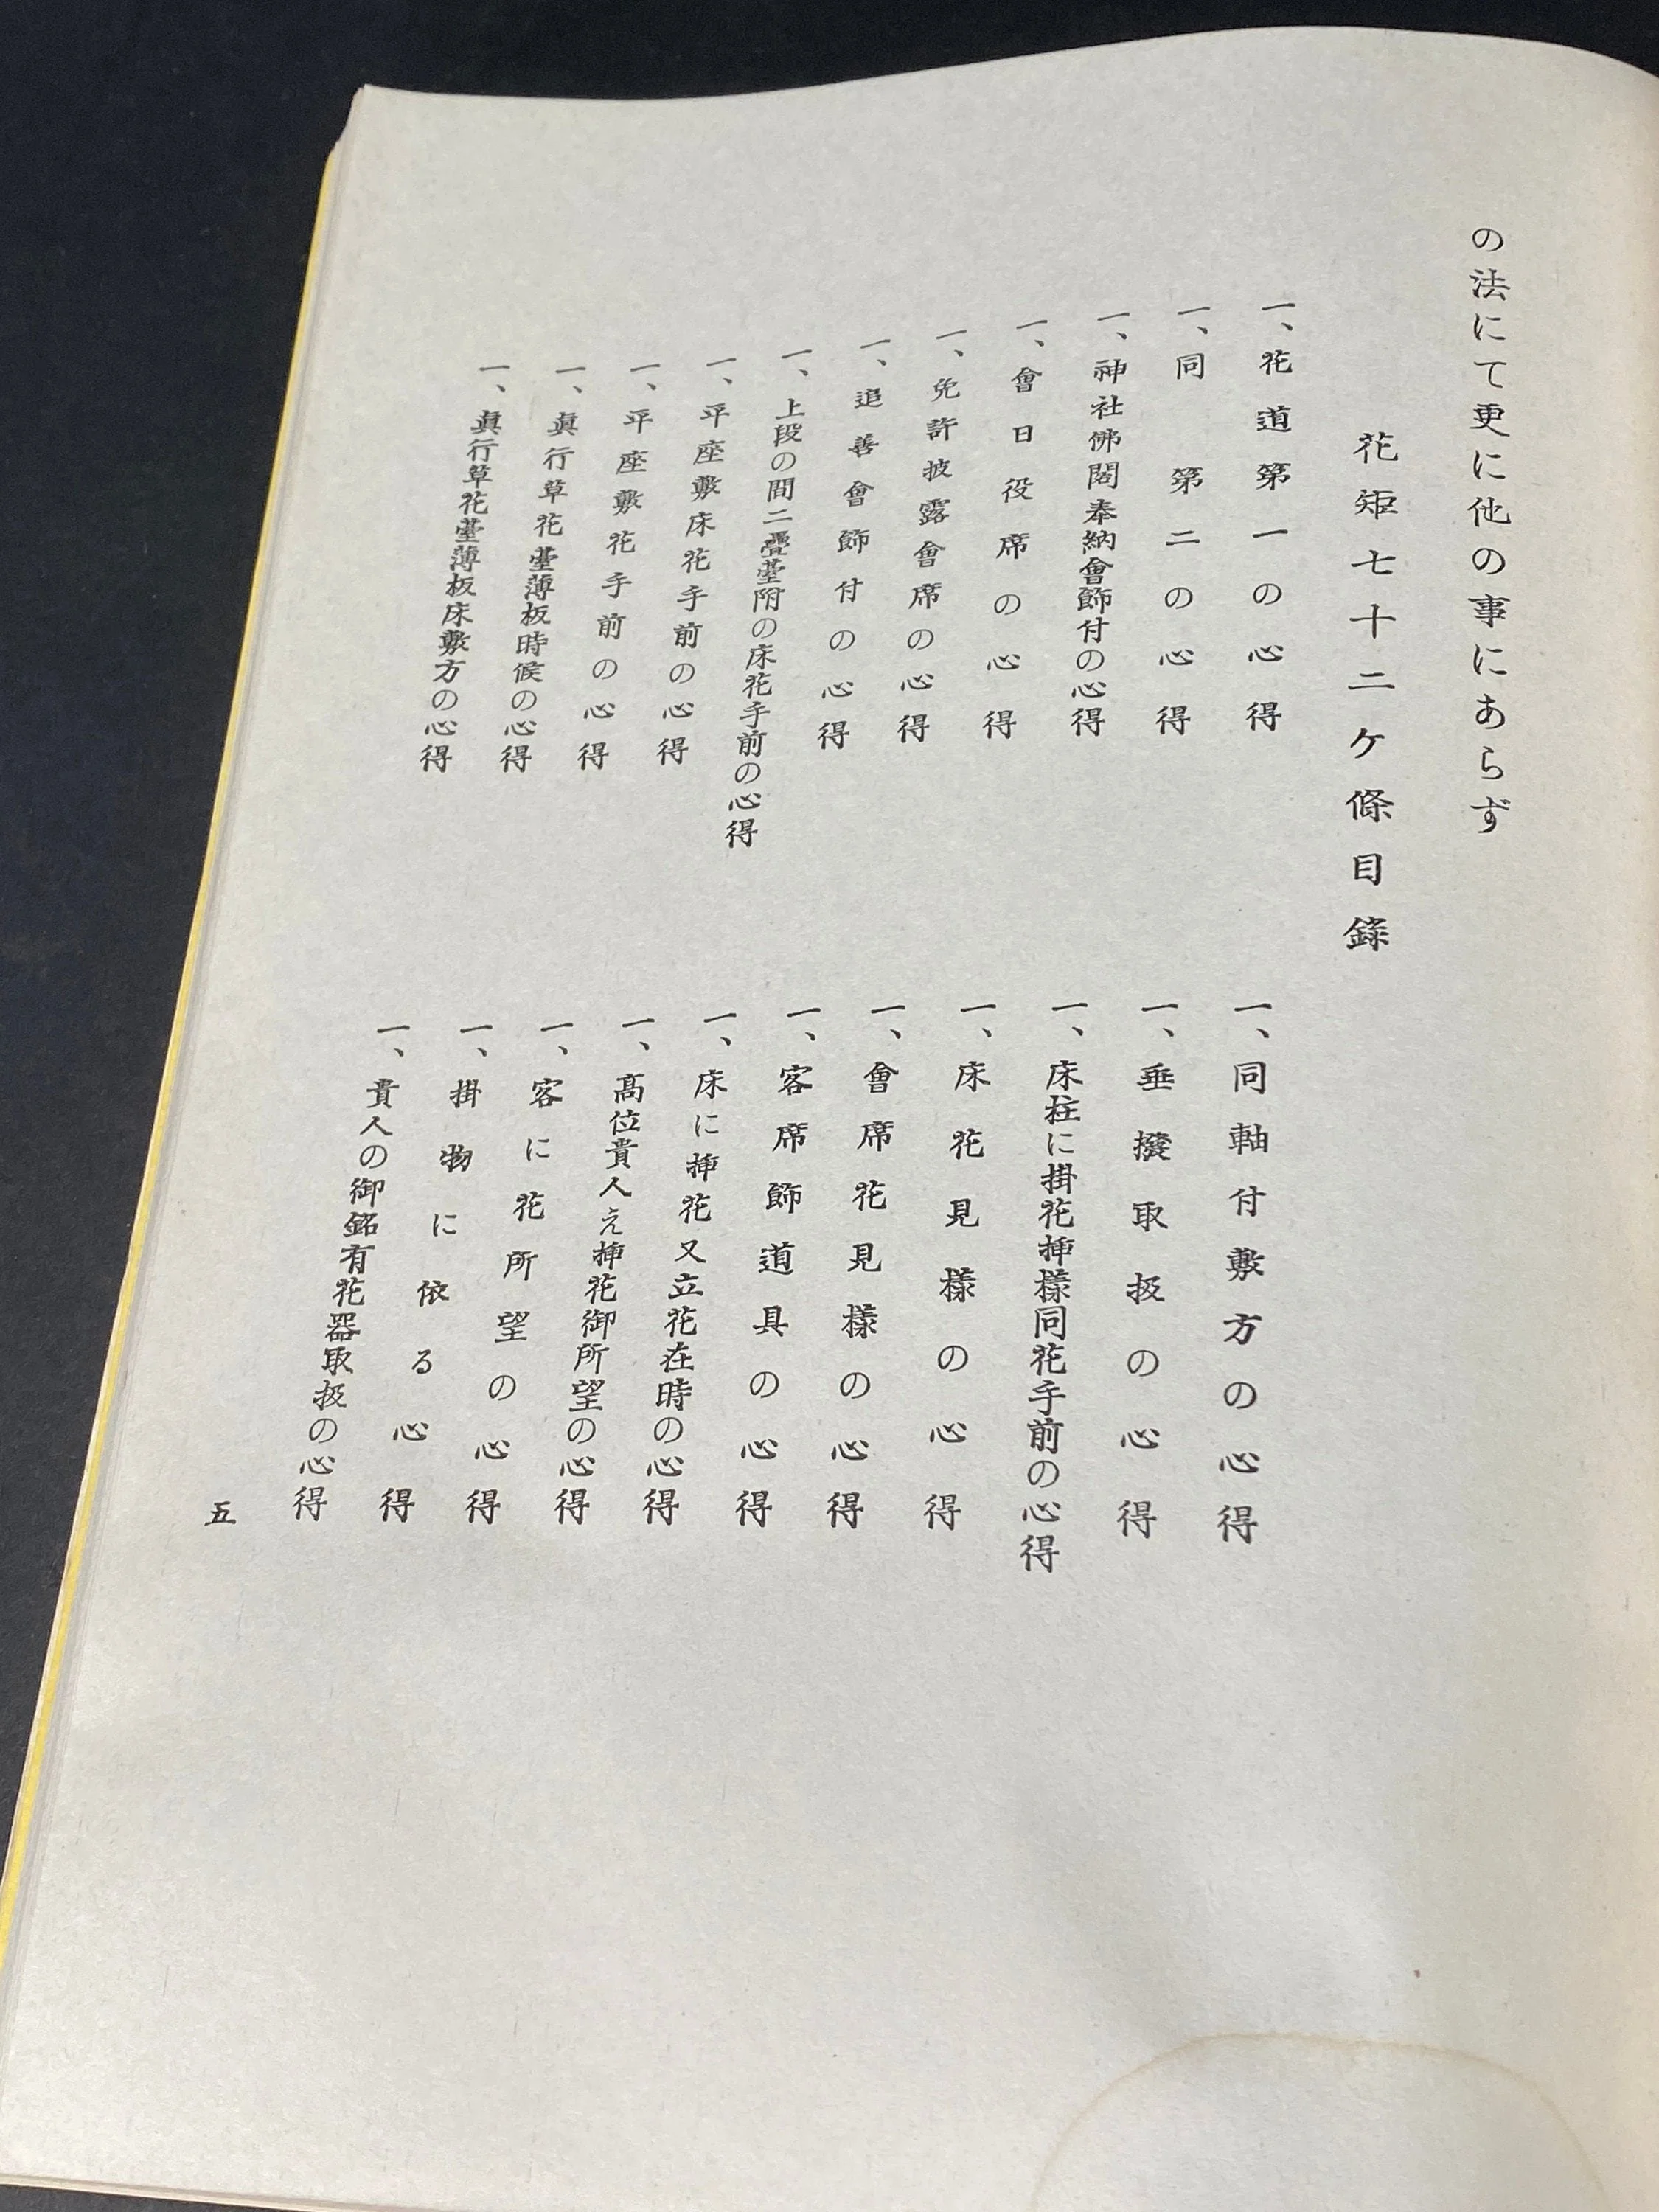 の法にて更に他の事にあらず
花矩七十二ケ條目錄
一、花道第一の心得
一、同第二の心得
一、神社佛閣奉納會飾付の心得
一、會日役席の心得
一、免許披露會席の心得
一、追善會飾付の心得
一、上段の間二疊臺附の床花手前の心得
一、平座敷床花手前の心得
一、平座敷花手前の心得
一、眞行草花臺薄板時候の心得
一、眞行草花臺薄板床敷方の心得
一、同軸付敷方の心得
一、垂撥取扱の心得
一、床柱に掛花揷樣同花手前の心得
一、床花見樣の心得
一、會席花見樣の心得
一、客席飾道具の心得
一、床に揷花又立花在時の心得
一、高位貴人え揷花御所望の心得
一、客に花所望の心得
一、掛物に依る心得
一、貴人の御銘有花器取扱の心得
五